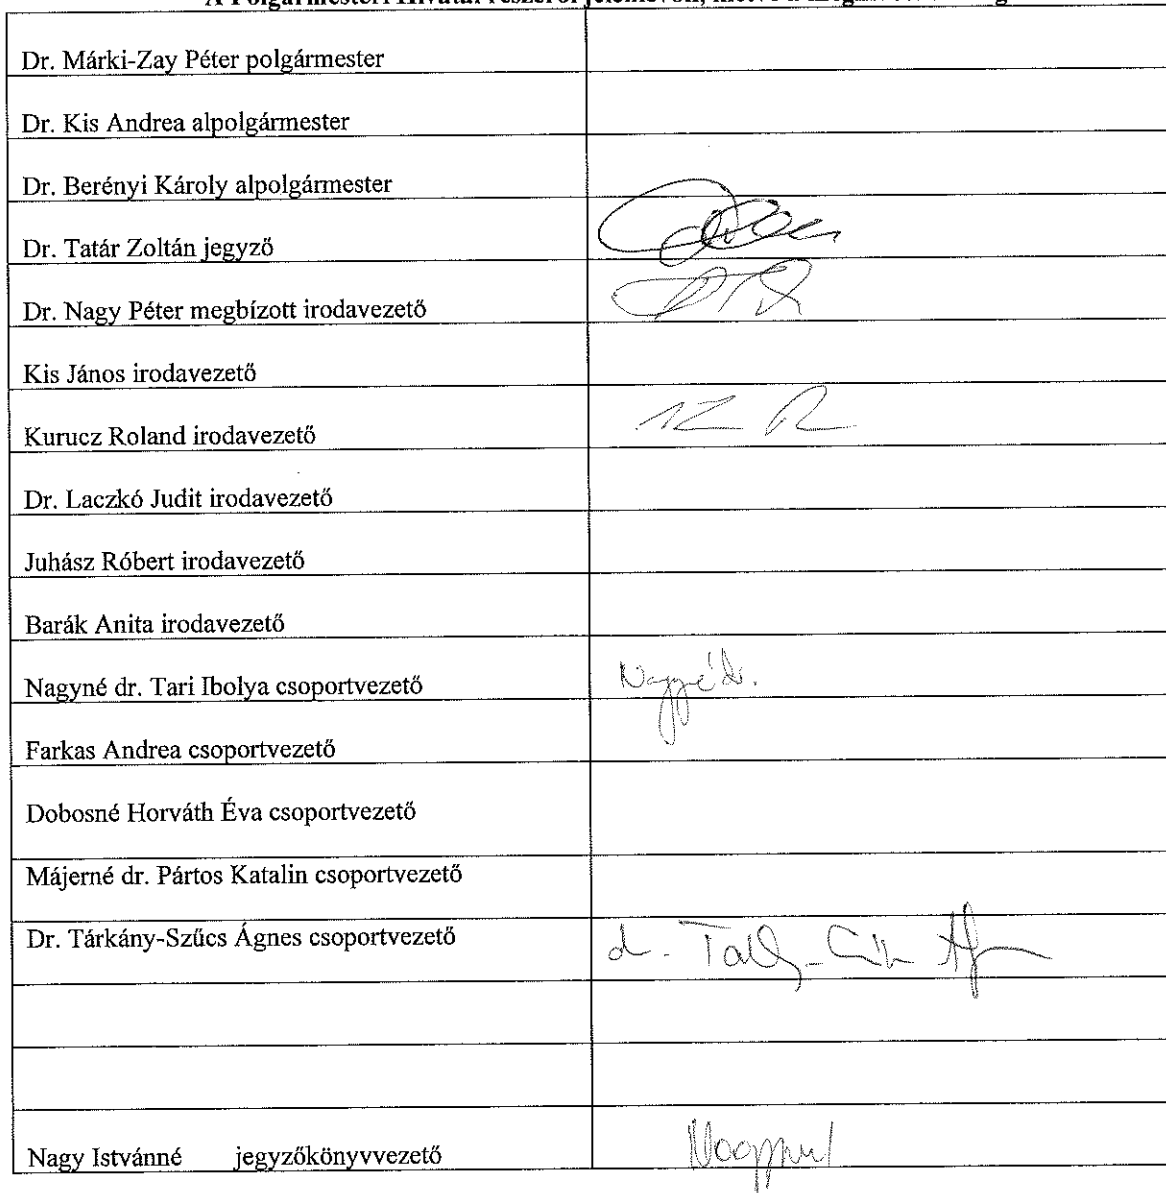 A Polgármesteri Hivatal részéről jelenlévők,
Dr. Márki-Zay Péter polgármester
Dr. Kis Andrea alpolgármester
Dr. Berényi Károly alpolgármester
Dr. Tatár Zoltán jegyző
Dr. Nagy Péter megbízott irodavezető
Kis János irodavezető
Kurucz Roland irodavezető
Dr. Laczkó Judit irodavezető
Juhász Róbert irodavezető
Barák Anita irodavezető
Nagyné dr. Tari Ibolya csoportvezető Nagyné dr.
Farkas Andrea csoportvezető
Dobosné Horváth Éva csoportvezető
Májerné dr. Pártos Katalin csoportvezető
Dr. Tárkány-Szűcs Ágnes csoportvezető
Nagy Istvánné jegyzőkönyvvezető